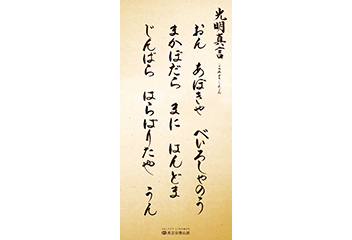 光明真言
おん あぼきゃ べいろしゃのう
まかぼだら まに はんどま
じんばら はらばりたや うん